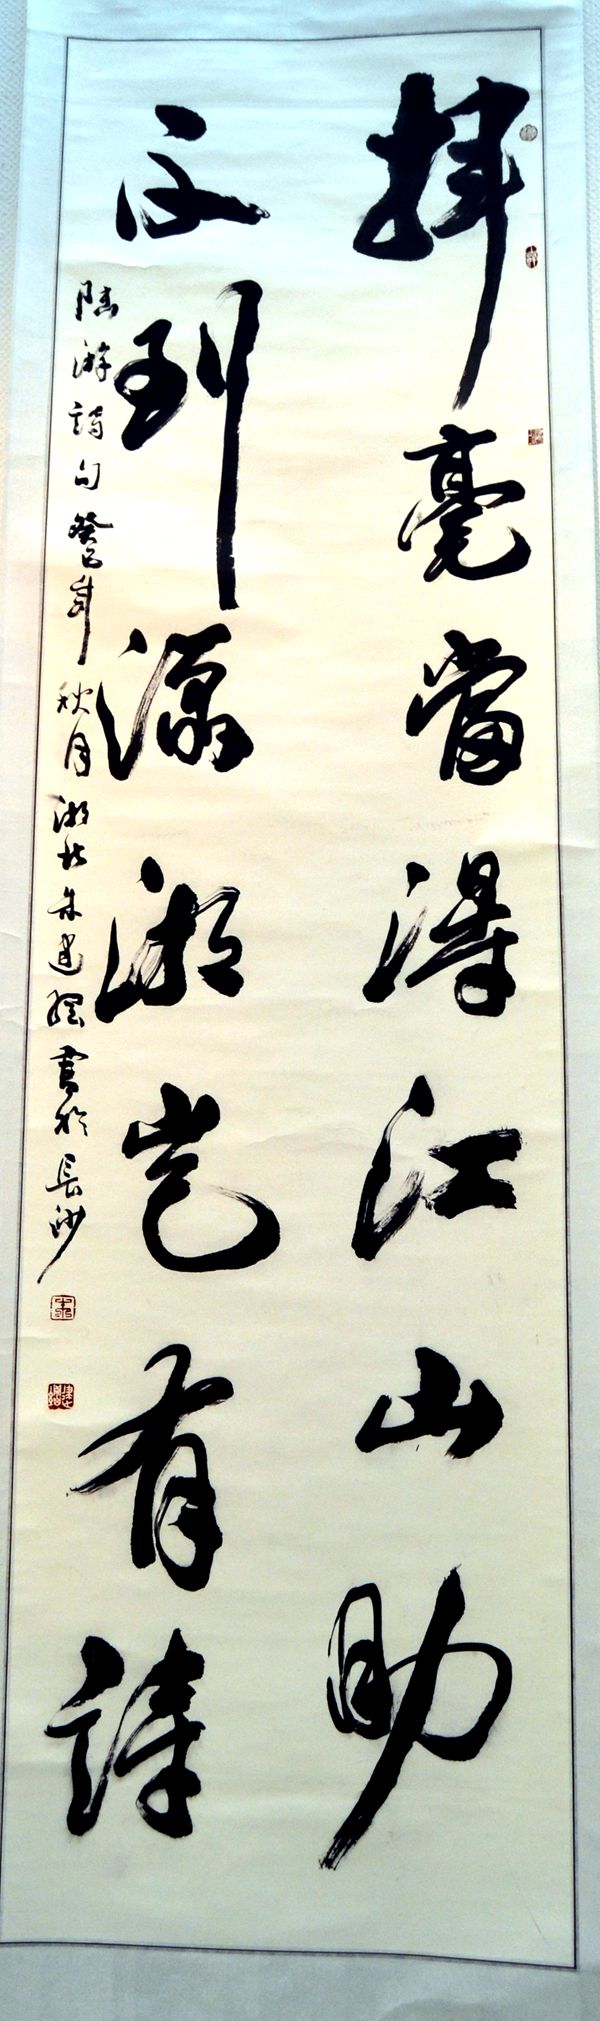 揮毫當得江山助
不到瀟湘豈有詩
陸游詩句癸巳年秋月湖北朱建綱書於長沙